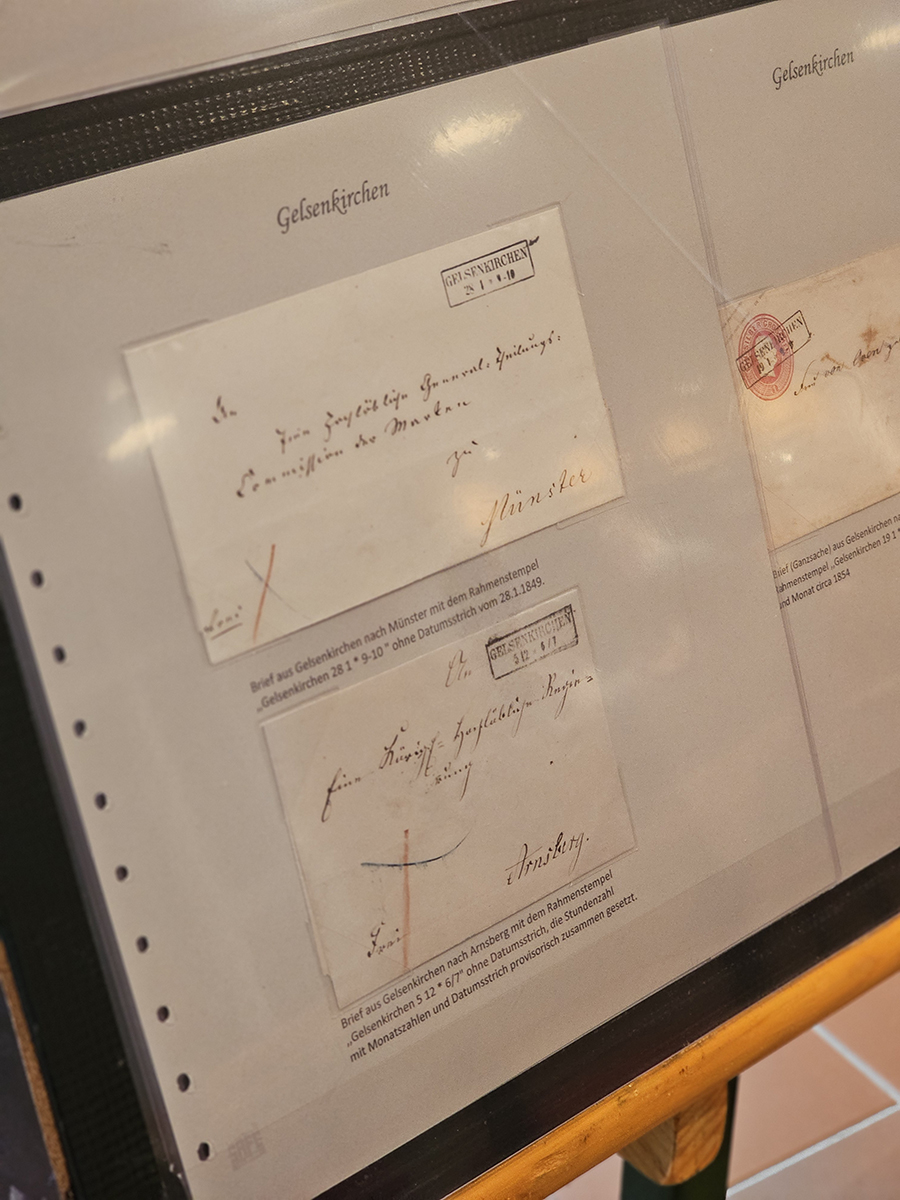 Gelsenkirchen
GELSENKIRCHEN
28 1 * 9-10
An
Eine Hochlöbliche General-Theilungs-
Commission der Marken
zu
Münster
Brief aus Gelsenkirchen nach Münster mit dem Rahmenstempel
„Gelsenkirchen 28 1 * 9-10 " ohne Datumsstrich vom 28.1.1849.
GELSENKIRCHEN
5 12 * 6/7
An
Eine Königl- Hochlöbliche Regie-
rung
Arnsberg.
Frei
Brief aus Gelsenkirchen nach Arnsberg mit dem Rahmenstempel
„Gelsenkirchen 5 12 * 6/7" ohne Datumsstrich, die Stundenzahl
mit Monatszahlen und Datumsstrich provisorisch zusammen gesetzt.
Gelsenkirchen
GELSENKIRCHEN
19 1
Brief (Ganzsache) aus Gelsenkirchen
Rahmenstempel „Gelsenkirchen 19 1 *
und Monat circa 1854